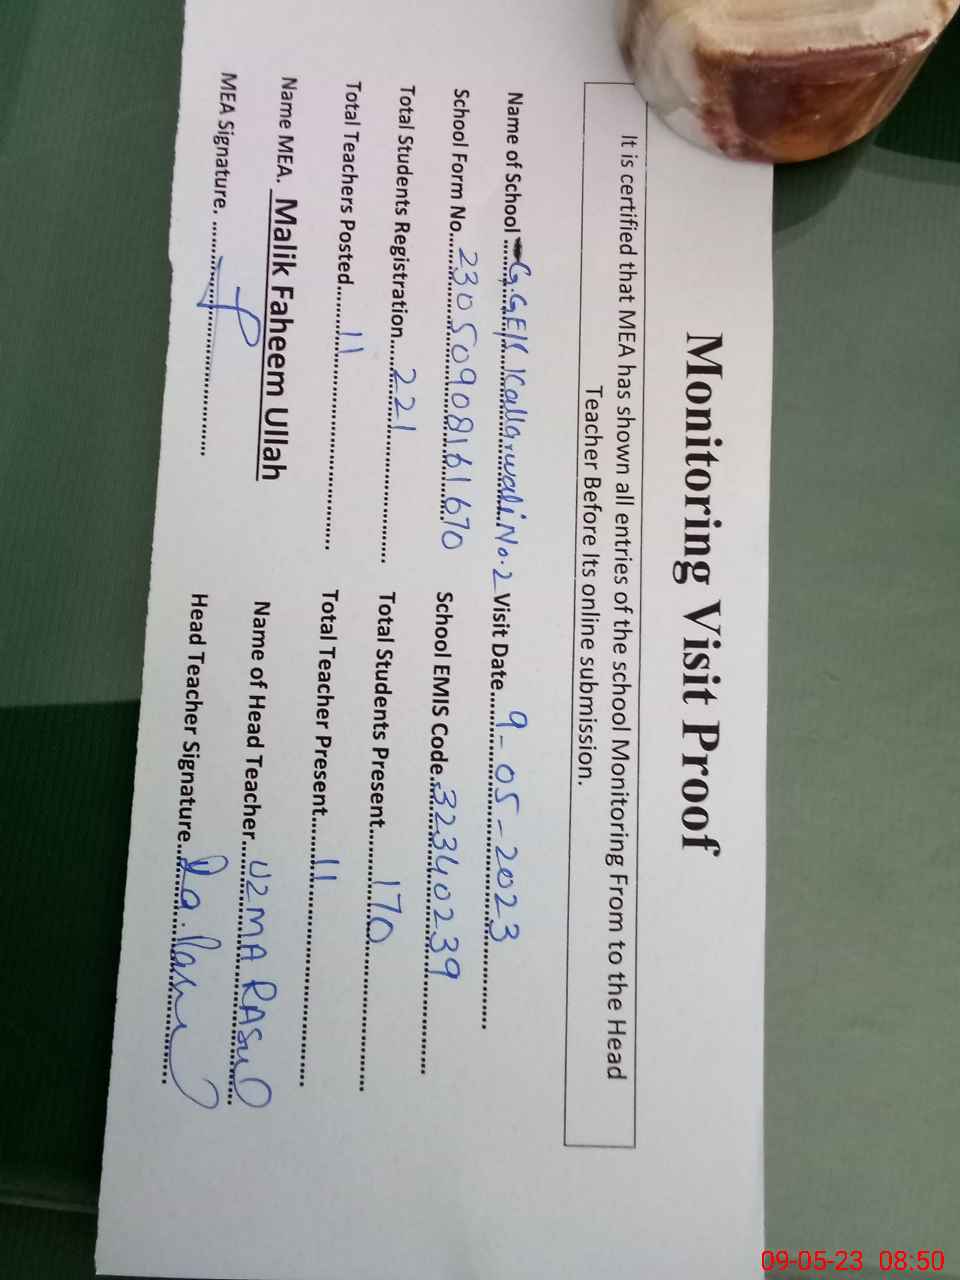 Monitoring Visit Proof
It is certified that MEA has shown all entries of the school Monitoring From to the Head
Teacher Before Its online submission.
Name of School ........G.GES Kallarwali No.2 Visit Date........9-05-2023........
School Form No........23050908161670 School EMIS Code........32340239........
Total Students Registration........221........ Total Students Present........170........
Total Teachers Posted........11........ Total Teacher Present........11........
Name MEA. Malik Faheem Ullah Name of Head Teacher........UZMA RASul
MEA Signature. ................ Head Teacher Signature................
09-05-23 08:50